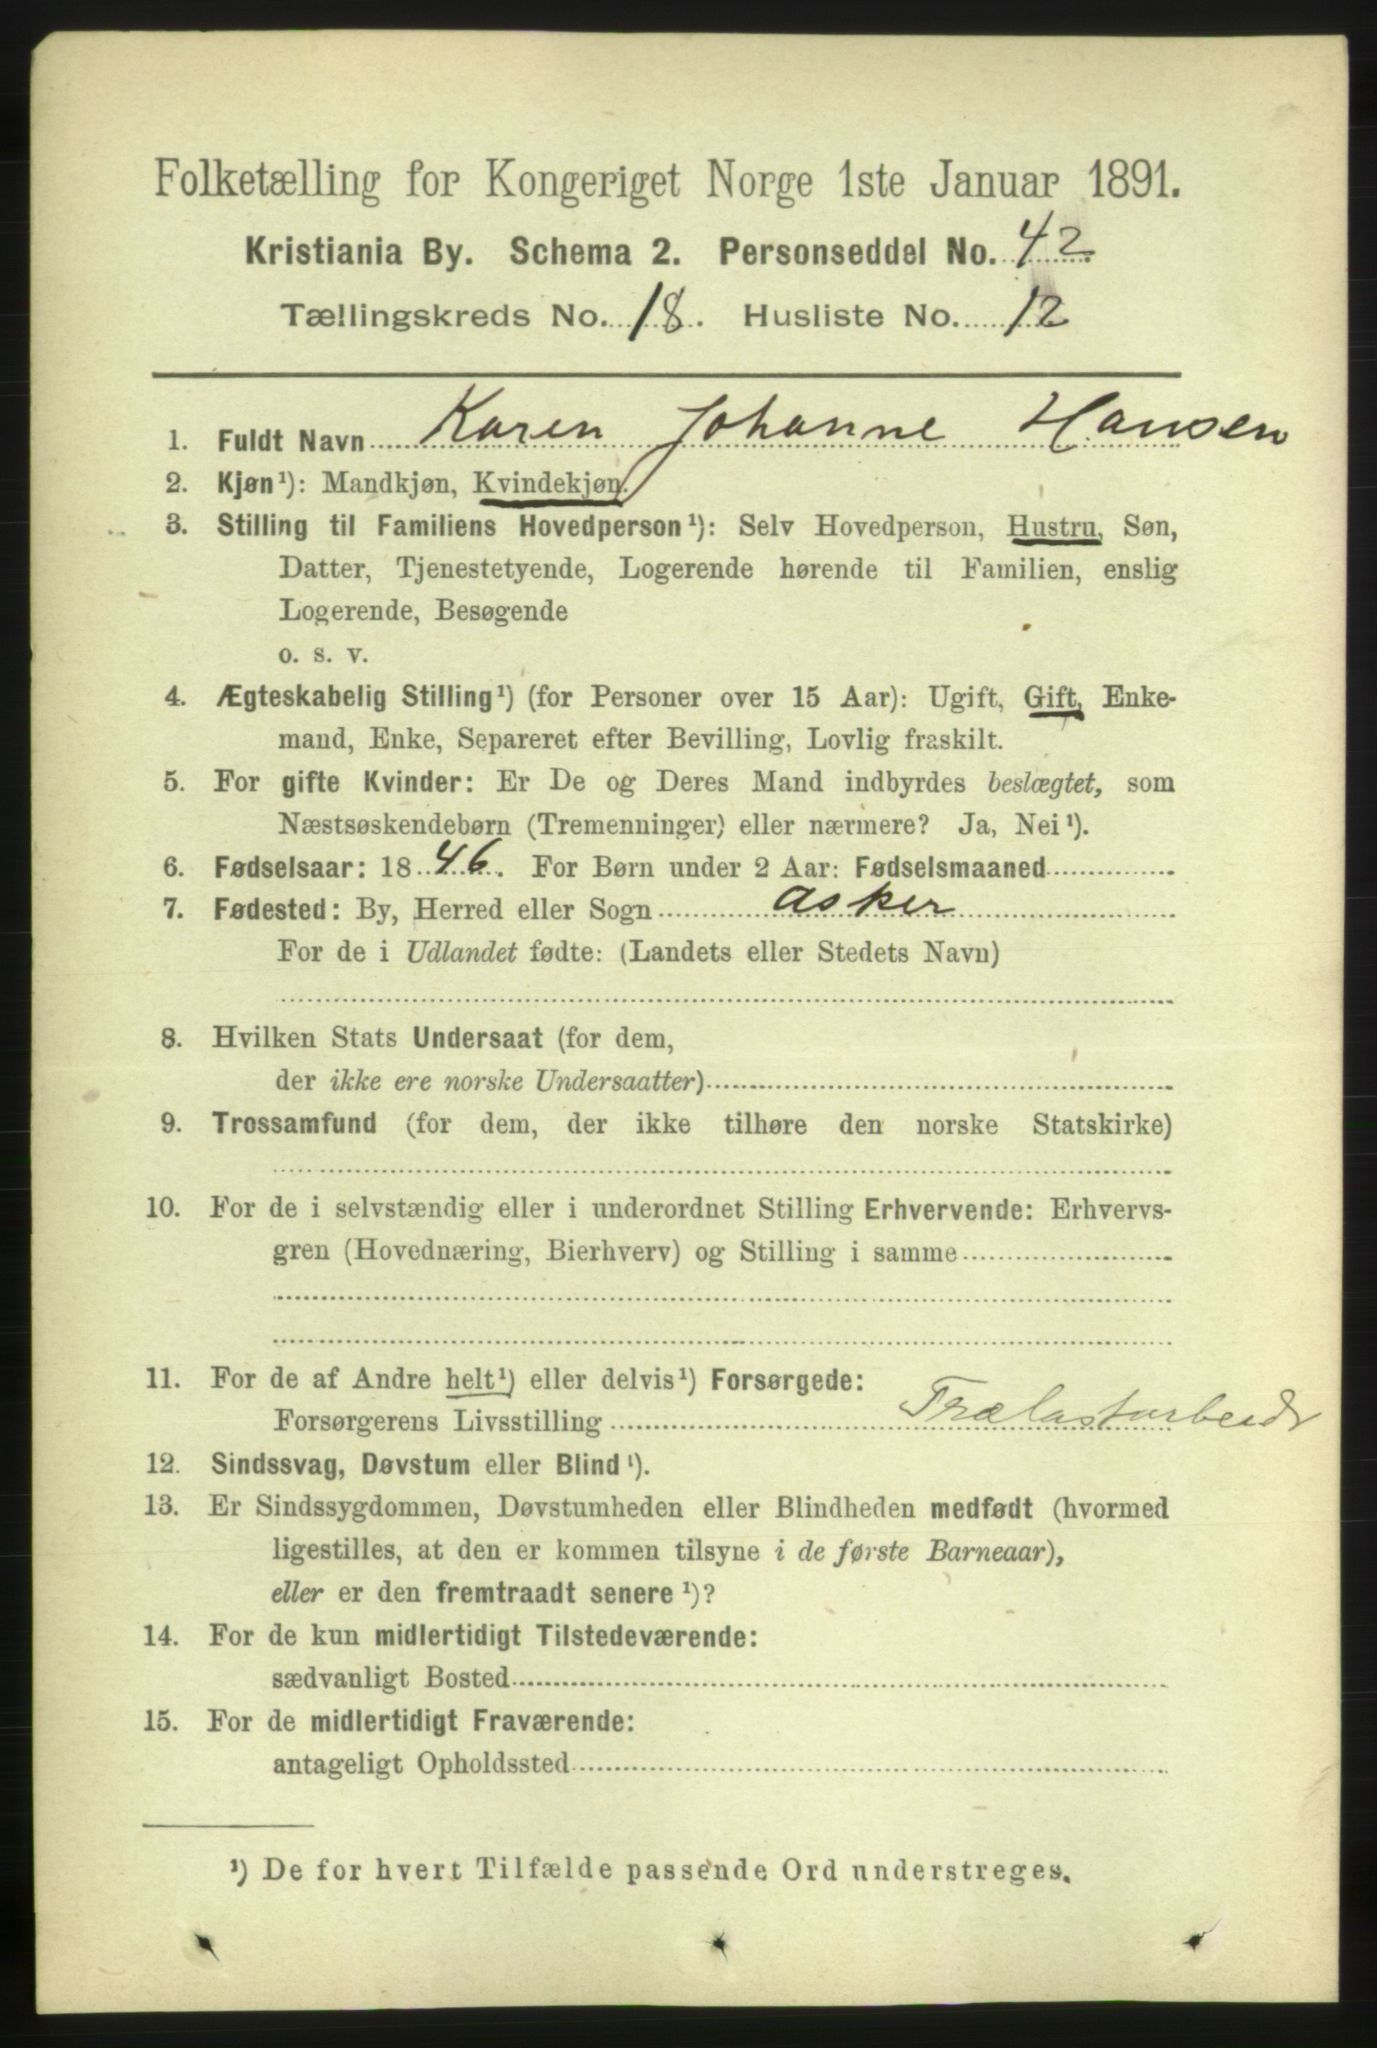 Folketælling for Kongeriget Norge 1ste Januar 1891.
Kristiania By. Schema 2. Personseddel No. 42
Tællingskreds No. 18. Husliste No. 12
1. Fuldt Navn Karen Johanne Hansen
2. Kjøn¹): Mandkjøn, Kvindekjøn.
3. Stilling til Familiens Hovedperson¹): Selv Hovedperson, Hustru, Søn,
Datter, Tjenestetyende, Logerende hørende til Familien, enslig
Logerende, Besøgende
o. s. v.
4. Ægteskabelig Stilling¹) (for Personer over 15 Aar): Ugift, Gift, Enke-
mand, Enke, Separeret efter Bevilling, Lovlig fraskilt.
5. For gifte Kvinder: Er De og Deres Mand indbyrdes beslægtet, som
Næstsøskendebørn (Tremenninger) eller nærmere? Ja, Nei¹).
6. Fødselsaar: 1846. For Børn under 2 Aar: Fødselsmaaned
7. Fødested: By, Herred eller Sogn Asker
For de i Udlandet fødte: (Landets eller Stedets Navn)
8. Hvilken Stats Undersaat (for dem,
der ikke ere norske Undersaatter)
9. Trossamfund (for dem, der ikke tilhøre den norske Statskirke)
10. For de i selvstændig eller i underordnet Stilling Erhvervende: Erhvervs-
gren (Hovednæring, Bierhverv) og Stilling i samme
11. For de af Andre helt¹) eller delvis¹) Forsørgede:
Forsørgerens Livsstilling Trælastarbeidr
12. Sindssvag, Døvstum eller Blind¹).
13. Er Sindssygdommen, Døvstumheden eller Blindheden medfødt (hvormed
ligestilles, at den er kommen tilsyne i de første Barneaar),
eller er den fremtraadt senere¹)?
14. For de kun midlertidigt Tilstedeværende:
sædvanligt Bosted
15. For de midlertidigt Fraværende:
antageligt Opholdssted
¹) De for hvert Tilfælde passende Ord understreges.